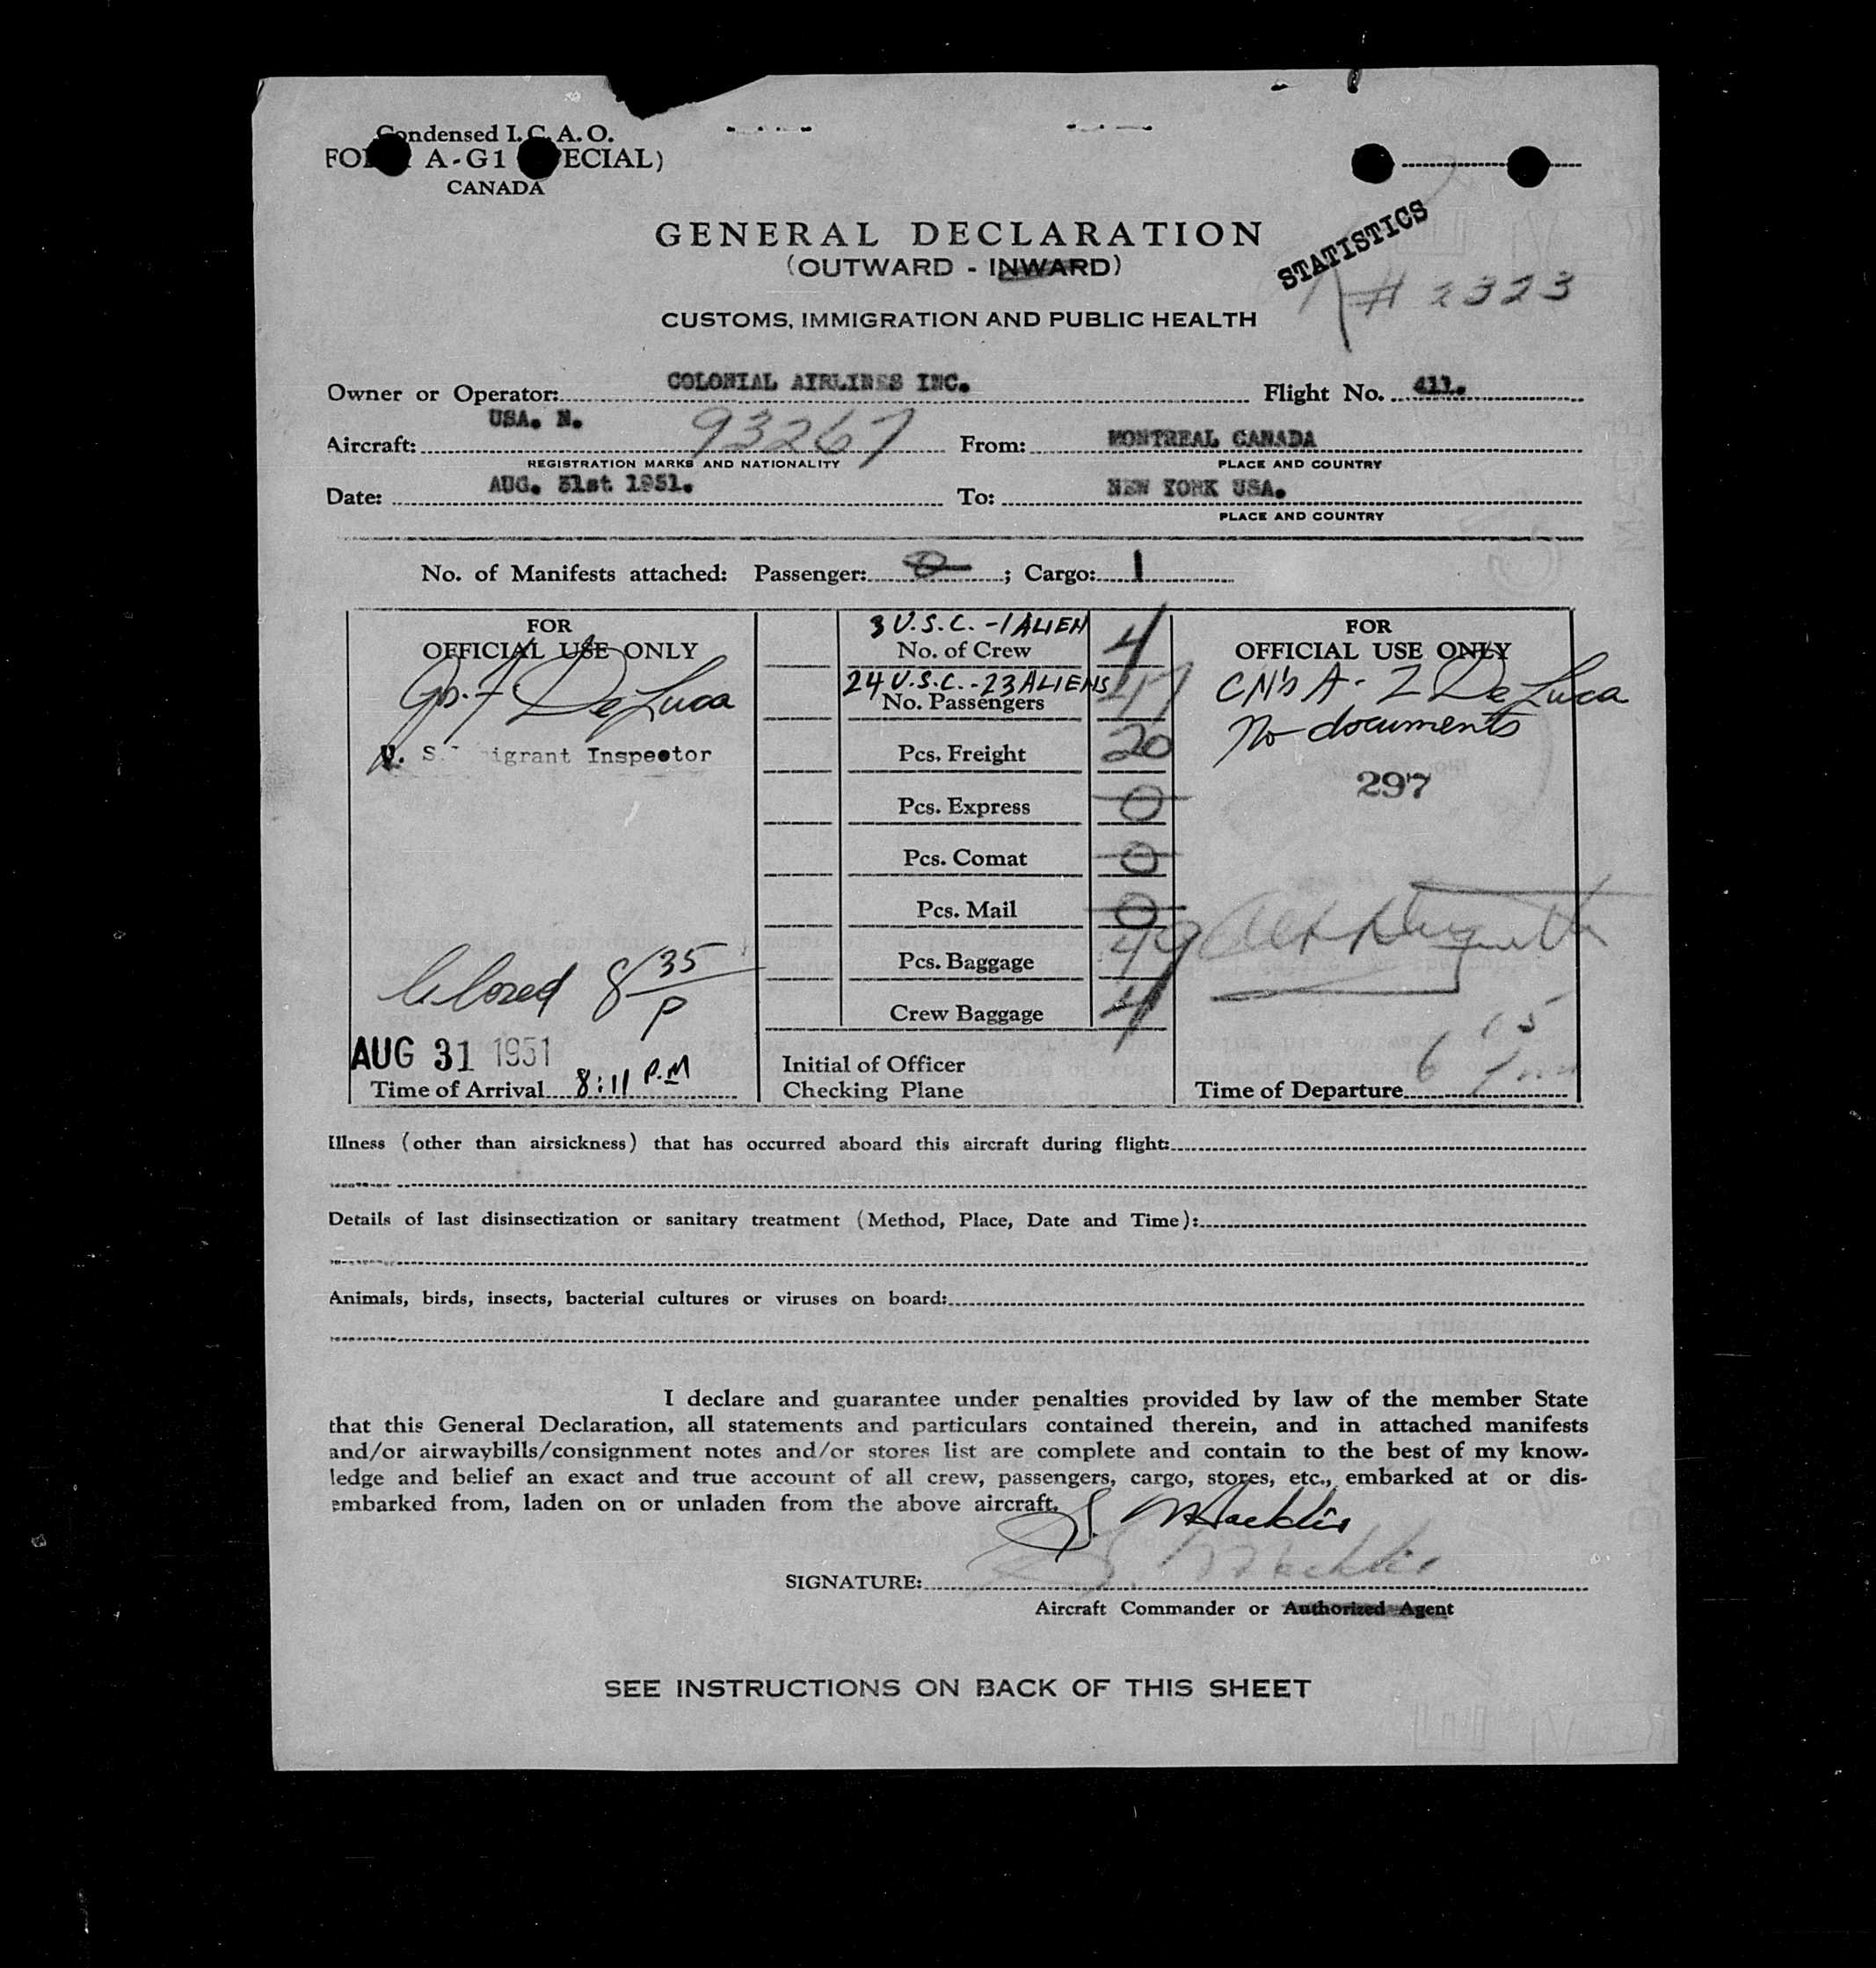 Condensed I.C.A.O.
A-G1
CANADA
GENERAL DECLARATION
(OUTWARD - INWARD)
STATISTICS
# 2323
CUSTOMS, IMMIGRATION AND PUBLIC HEALTH
Owner or Operator: COLONIAL AIRLINES INC. Flight No. 411.
Aircraft: USA. N. 93267 From: MONTREAL CANADA
REGISTRATION MARKS AND NATIONALITY PLACE AND COUNTRY
Date: AUG. 31st 1951. To: NEW YORK USA.
PLACE AND COUNTRY
No. of Manifests attached: Passenger: 0 ; Cargo: 1
FOR
OFFICIAL USE ONLY
De Luca
Inspector
Closed 8 35 P
AUG 31 1951
Time of Arrival 8:11 P.M
3 U.S.C. - 1 ALIEN
No. of Crew 4
24 U.S.C. - 23 ALIENS
No. Passengers 47
Pcs. Freight 20
Pcs. Express 0
Pcs. Comat 0
Pcs. Mail 0
Pcs. Baggage 49
Crew Baggage 4
Initial of Officer
Checking Plane
FOR
OFFICIAL USE ONLY
De Luca
No documents
297
Time of Departure 6
Illness (other than airsickness) that has occurred aboard this aircraft during flight:
Details of last disinsectization or sanitary treatment (Method, Place, Date and Time):
Animals, birds, insects, bacterial cultures or viruses on board:
I declare and guarantee under penalties provided by law of the member State
that this General Declaration, all statements and particulars contained therein, and in attached manifests
and/or airwaybills/consignment notes and/or stores list are complete and contain to the best of my know-
ledge and belief an exact and true account of all crew, passengers, cargo, stores, etc., embarked at or dis-
embarked from, laden on or unladen from the above aircraft.
SIGNATURE:
Aircraft Commander or Authorized Agent
SEE INSTRUCTIONS ON BACK OF THIS SHEET